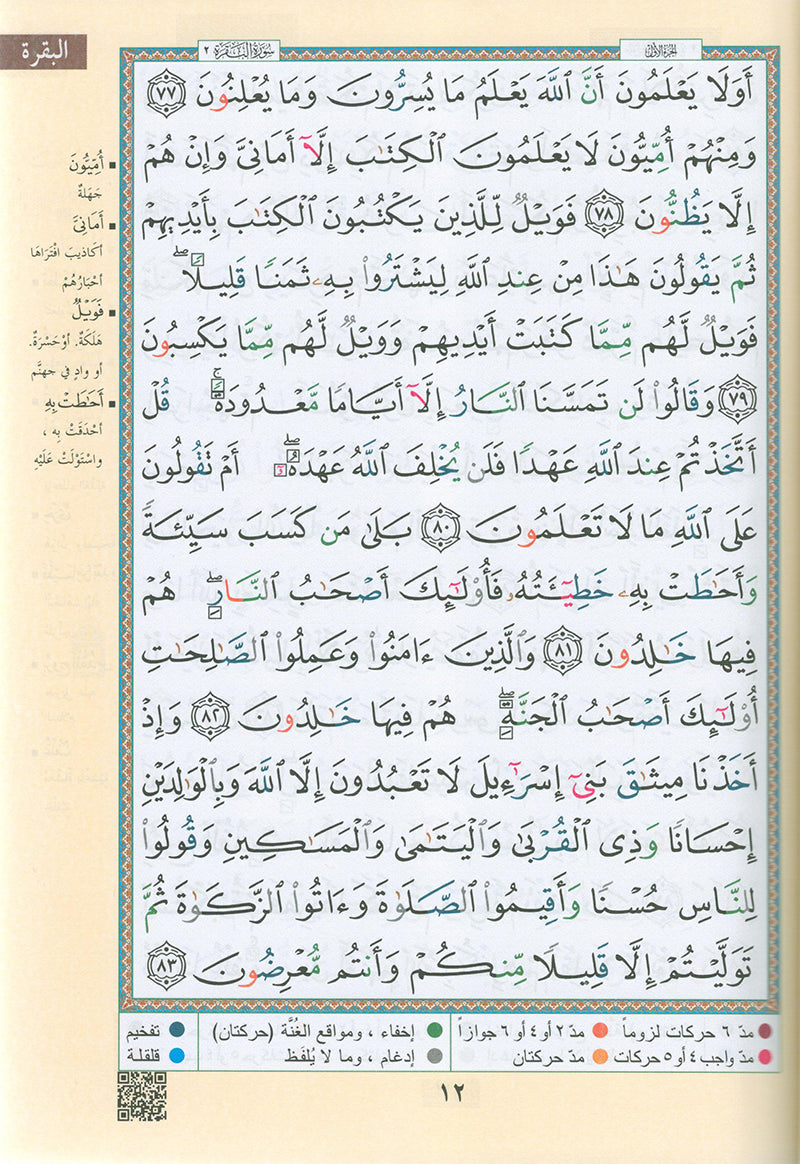 البقرة
سُورَةُ البَقَرَةِ ٢
الجزء الأول
أَوَلَا يَعْلَمُونَ أَنَّ ٱللَّهَ يَعْلَمُ مَا يُسِرُّونَ وَمَا يُعْلِنُونَ ٧٧
وَمِنْهُمْ أُمِّيُّونَ لَا يَعْلَمُونَ ٱلْكِتَٰبَ إِلَّآ أَمَانِىَّ وَإِنْ هُمْ
إِلَّا يَظُنُّونَ ٧٨ فَوَيْلٌ لِّلَّذِينَ يَكْتُبُونَ ٱلْكِتَٰبَ بِأَيْدِيهِمْ
ثُمَّ يَقُولُونَ هَٰذَا مِنْ عِندِ ٱللَّهِ لِيَشْتَرُوا۟ بِهِۦ ثَمَنًا قَلِيلًا ۖ
فَوَيْلٌ لَّهُم مِّمَّا كَتَبَتْ أَيْدِيهِمْ وَوَيْلٌ لَّهُم مِّمَّا يَكْسِبُونَ
٧٩ وَقَالُوا۟ لَن تَمَسَّنَا ٱلنَّارُ إِلَّآ أَيَّامًا مَّعْدُودَةً ۚ قُلْ
أَتَّخَذْتُمْ عِندَ ٱللَّهِ عَهْدًا فَلَن يُخْلِفَ ٱللَّهُ عَهْدَهُۥٓ ۖ أَمْ تَقُولُونَ
عَلَى ٱللَّهِ مَا لَا تَعْلَمُونَ ٨٠ بَلَىٰ مَن كَسَبَ سَيِّئَةً
وَأَحَٰطَتْ بِهِۦ خَطِيٓـَٔتُهُۥ فَأُو۟لَٰٓئِكَ أَصْحَٰبُ ٱلنَّارِ ۖ هُمْ
فِيهَا خَٰلِدُونَ ٨١ وَٱلَّذِينَ ءَامَنُوا۟ وَعَمِلُوا۟ ٱلصَّٰلِحَٰتِ
أُو۟لَٰٓئِكَ أَصْحَٰبُ ٱلْجَنَّةِ ۖ هُمْ فِيهَا خَٰلِدُونَ ٨٢ وَإِذْ
أَخَذْنَا مِيثَٰقَ بَنِىٓ إِسْرَٰٓءِيلَ لَا تَعْبُدُونَ إِلَّا ٱللَّهَ وَبِٱلْوَٰلِدَيْنِ
إِحْسَانًا وَذِى ٱلْقُرْبَىٰ وَٱلْيَتَٰمَىٰ وَٱلْمَسَٰكِينِ وَقُولُوا۟
لِلنَّاسِ حُسْنًا وَأَقِيمُوا۟ ٱلصَّلَوٰةَ وَءَاتُوا۟ ٱلزَّكَوٰةَ ثُمَّ
تَوَلَّيْتُمْ إِلَّا قَلِيلًا مِّنكُمْ وَأَنتُم مُّعْرِضُونَ ٨٣
أُمِّيُّونَ
جَهَلةٌ
أَمَانِىَّ
أكاذيبَ افْتَرَاهَا
أحْبَارُهُمْ
فَوَيْلٌ
هَلَكَةٌ. أوْ حَسْرَةٌ.
أو وادٍ في جهنَّم
أَحَٰطَتْ بِهِ
أحْدَقَتْ بِهِ ،
واسْتَوْلَتْ عَلَيْهِ
مدّ ٦ حركات لزوماً مدّ ٢ أو ٤ أو ٦ جوازاً إخفاء ، ومواقع الغُنَّة (حركتان) تفخيم
مدّ واجب ٤ أو ٥ حركات مدّ حركتان إدغام ، وما لا يُلفَظ قلقلة
١٢